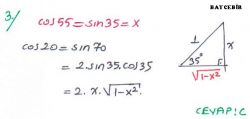 BATCEBİR
3/
cos55 = sin35 = x
cos20 = sin70
= 2.sin35.cos35
= 2. x. √1-x²
1
x
35°
√1-x²
CEVAP: C